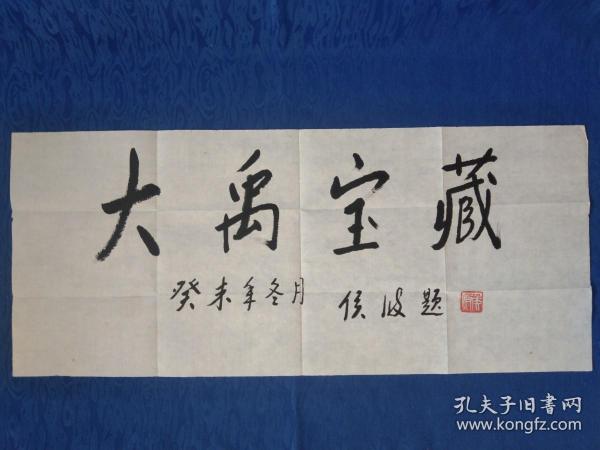 大禹宝藏
癸未年冬月 侯波题
孔夫子旧书网
www.kongfz.com